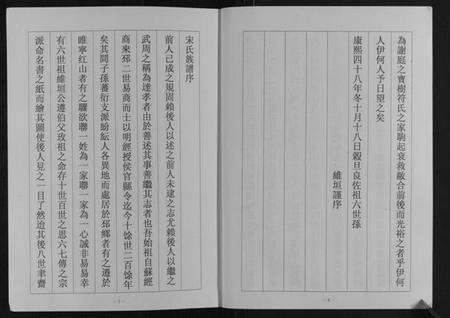 為謝庭之寶樹符氏之家駒起衰救敝合前後而光裕之者乎伊何
人伊何人予日望之矣
康熙四十八年冬十月十八日穀旦良佐祖六世孫
維垣謹序
宋氏族譜序
前人已成之規固賴後人以述之前人未遂之志尤賴後人以繼之
武周之稱為達孝者由於善述其事善繼其志者也吾始祖自蘇經
商來邳二世易商而士以明經授侯官縣令迄今十餘世二百餘年
矣其間子孫蕃衍支派紛紜人各異地而處居於邳鄉者有之遷於
睢寧紅山者有之驟欲聯一姓為一家聯一家為一心誠非易易幸
有六世祖維垣公遵伯父玫祖之命存十世百世之思六七傳之宗
派命名書之紙而繪其圖使後人見之一目了然迨其後八世聿齋